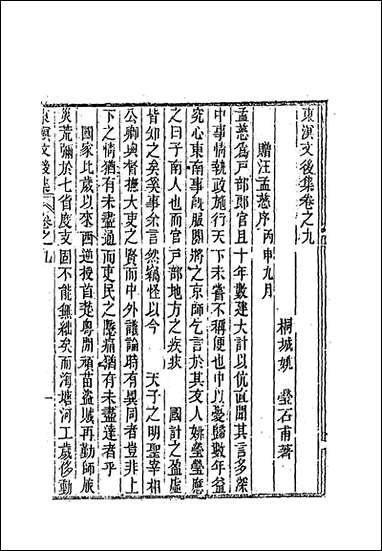 東溟文後集卷之九
桐城姚 瑩石甫著
贈汪孟慈序丙申九月
孟慈為戶部郎官且十年數建大計以伉直聞其言多深
中事情執政施行天下未嘗不稱便也中以憂歸數年益
究心東南事既服闋將之京師乞言於其友人姚瑩瑩應
之曰子南人也而官戶部地方之疾疚 國計之盈虛
皆知之矣奚事余言然竊怪以今 天子之明聖宰相
公卿與督撫大吏之賢而中外議論時有異同者豈非上
下之情猶有未盡通而吏民之懸痛猶有未盡達者乎
國家比歲以來西逆授首楚粵間頑苗盜賊再勤師旅
災荒彌於七省度支固不能無絀矣而海塘河工歲侈動
東溟文後集 卷之九 一